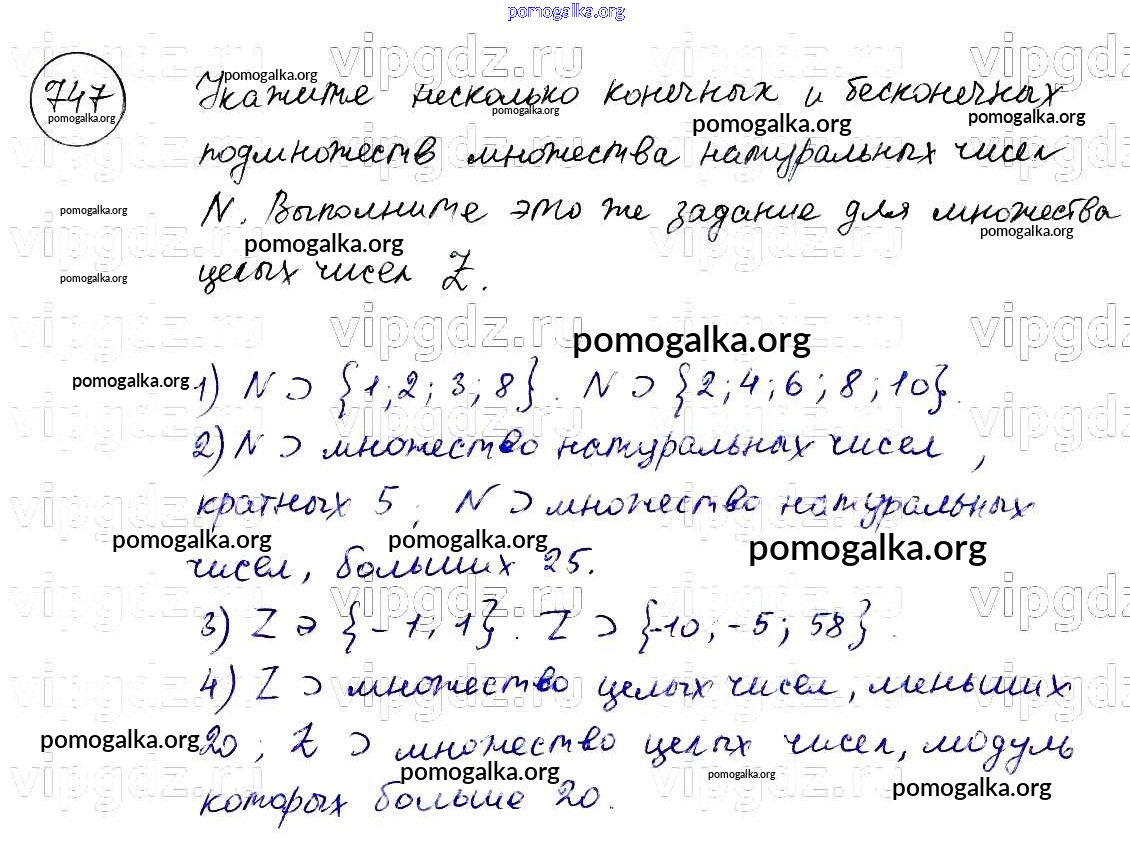 pomogalka.org
747 Укажите несколько конечных и бесконечных
подмножеств множества натуральных чисел
N. Выполните это же задание для множества
целых чисел Z.
1) N ⊃ {1; 2; 3; 8}. N ⊃ {2; 4; 6; 8; 10}.
2) N ⊃ множество натуральных чисел,
кратных 5; N ⊃ множество натуральных
чисел, больших 25.
3) Z ∋ {-1; 1}. Z ⊃ {-10; -5; 58}.
4) Z ⊃ множество целых чисел, меньших
20; Z ⊃ множество целых чисел, модуль
которых больше 20.